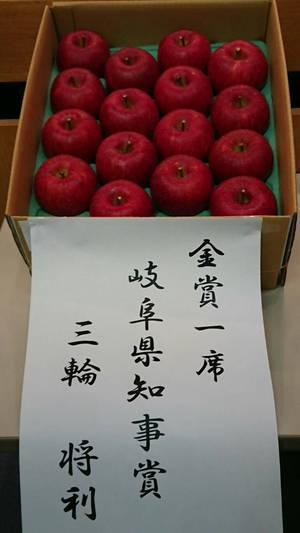 金賞一席
岐阜県知事賞
三輪 将利